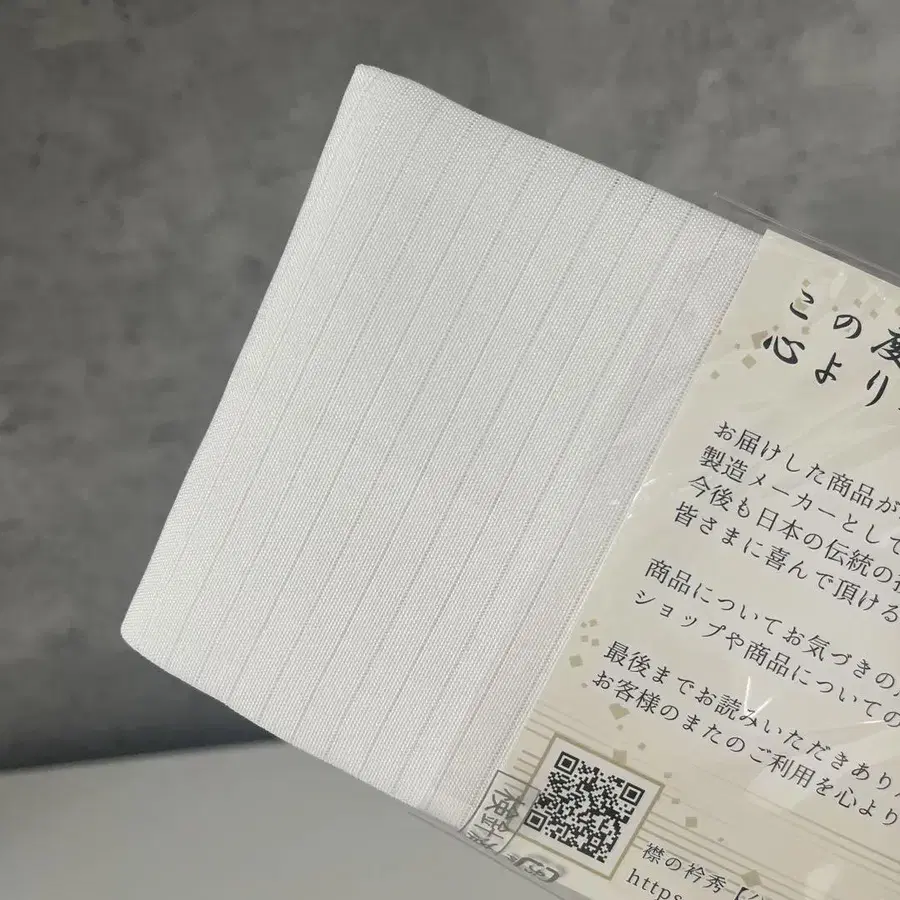 この度
心より
お届けした商品が
製造メーカーとして
今後も日本の伝統の
皆さまに喜んで頂ける
商品についてお気づきの
ショップや商品についての
最後までお読みいただきあり
お客様のまたのご利用を心より
襟の衿秀【公
https